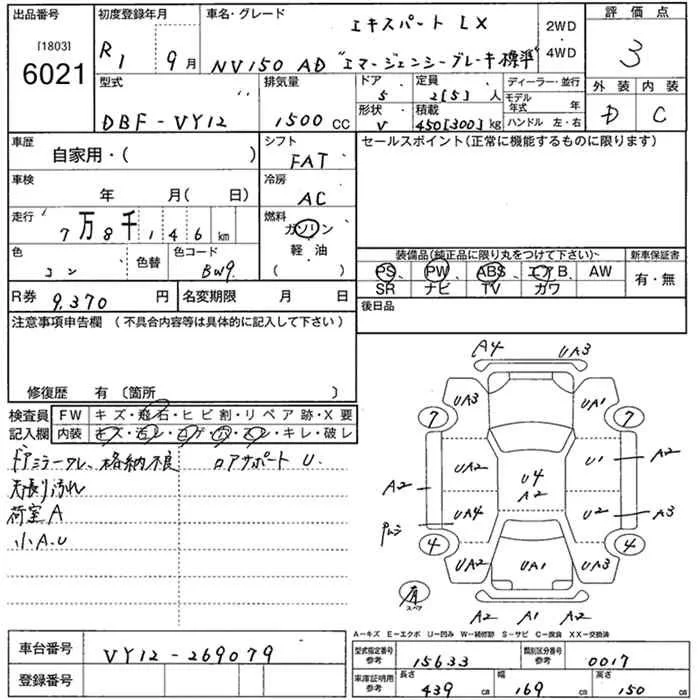 出品番号 初度登録年月 車名・グレード エキスパート LX 2WD・4WD 評価点
[1803] 6021 R1 9月 NV150 AD "エマージェンシーブレーキ標準" 3
型式 排気量 ドア 5 定員 2[5]人 ディーラー・並行 外装 内装
DBF-VY12 1500cc 形状 V 積載 450[300]kg モデル年式 年 ハンドル 左・右 D C
車歴 シフト セールスポイント(正常に機能するものに限ります)
自家用・( ) FAT
車検 冷房
年 月( 日) AC
走行 燃料
7万8千146km ガソリン
色 色替 色コード 軽・油 装備品(純正品に限り丸をつけて下さい) 新車保証書
コン BW9 ( ) PS PW ABS エアB AW 有・無
R券 9,370円 名変期限 月 日 SR ナビ TV カワ
注意事項申告欄(不具合内容等は具体的に記入して下さい) 後日品
修復歴 有〔箇所 〕
検査員 FW キズ・飛石・ヒビ割・リペア跡・X要
記入欄 内装 キズ・汚レ・コゲ・穴・スレ・キレ・破レ
ドアミラーワレ、格納不良 ロアサポート U.
天張り汚れ
荷室A
小A.U
A4 UA3
UA3 UA1
7 7
U1 A2
A2 U4 A2
UA4 U2 A3
4 4
UA2 UA1 UA3
有 スペア
A2 A1 A2
A-キズ E-エクボ U-凹み W-補修跡 S-サビ C-腐食 XX-交換済
車台番号 VY12-269079 型式指定番号 参考 15633 類別区分番号 参考 0017
登録番号 車庫証明用 参考 長さ 439cm 幅 169cm 高さ 150cm